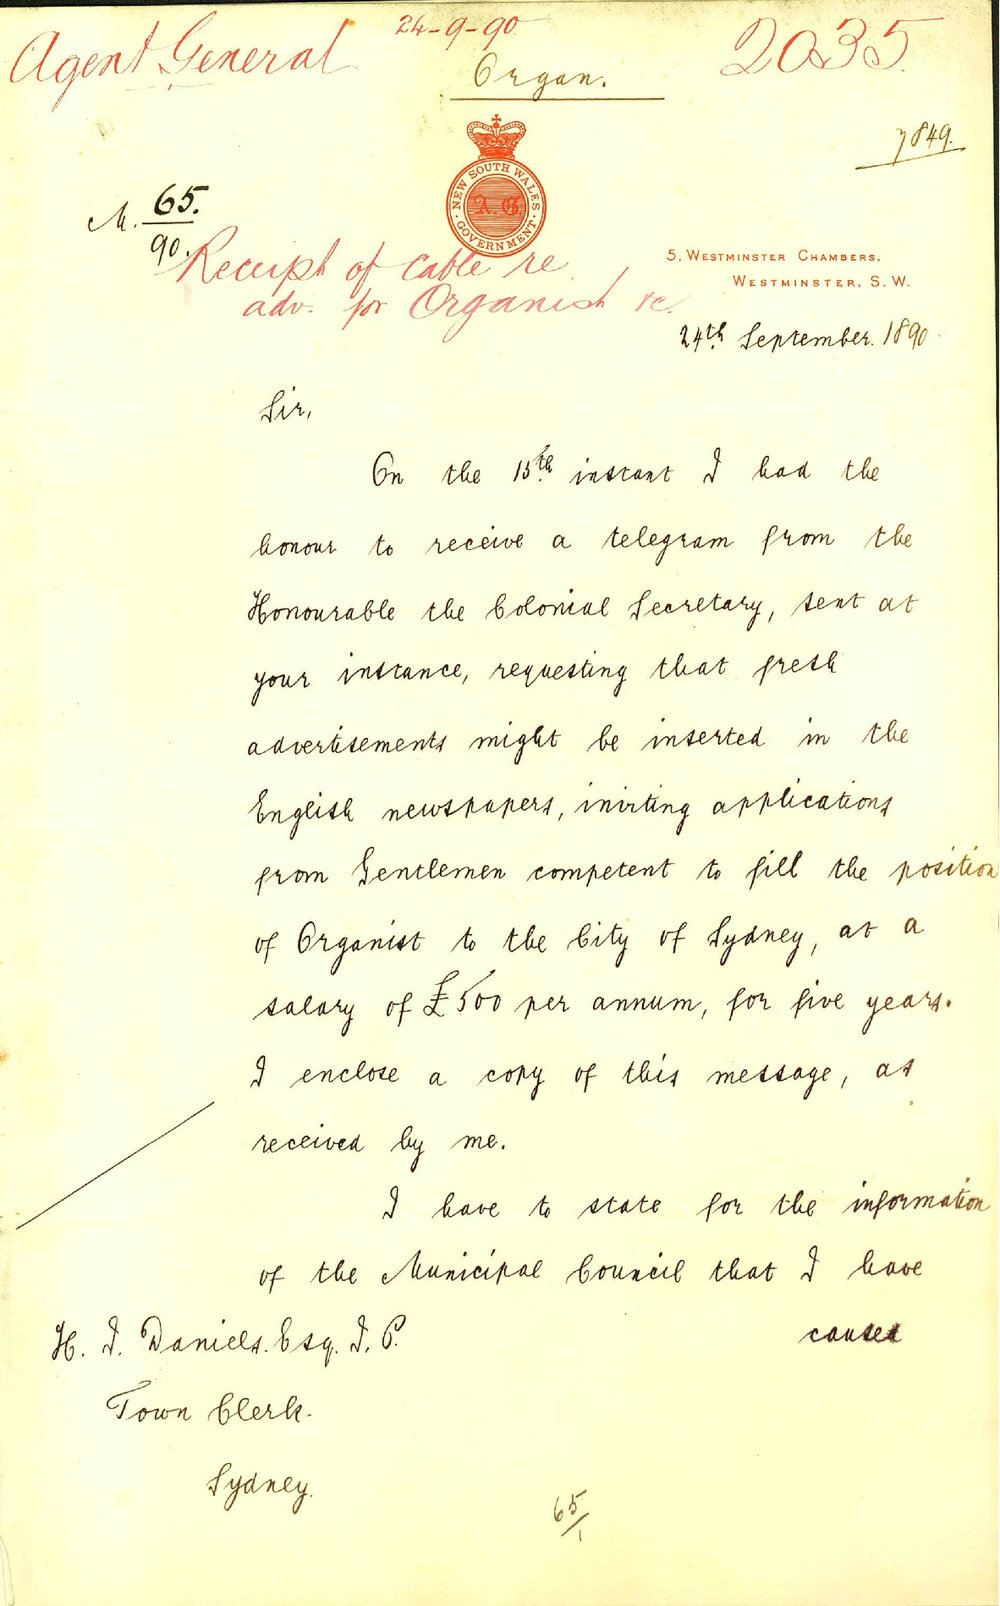 Agent General
24-9-90
2035
Organ.
7849.
NEW SOUTH WALES
A.G.
GOVERNMENT
M. 65.
90.
Receipt of Cable re
adv. for Organist &c.
5, WESTMINSTER CHAMBERS,
WESTMINSTER, S.W.
24th September. 1890.
Sir,
On the 15th instant I had the
honour to receive a telegram from the
Honourable the Colonial Secretary, sent at
your instance, requesting that fresh
advertisements might be inserted in the
English newspapers, inviting applications
from Gentlemen competent to fill the position
of Organist to the City of Sydney, at a
salary of £500 per annum, for five years.
I enclose a copy of this message, as
received by me.
I have to state for the information
of the Municipal Council that I have
caused
H. J. Daniels. Esq. J. P.
Town Clerk.
Sydney.
65/1